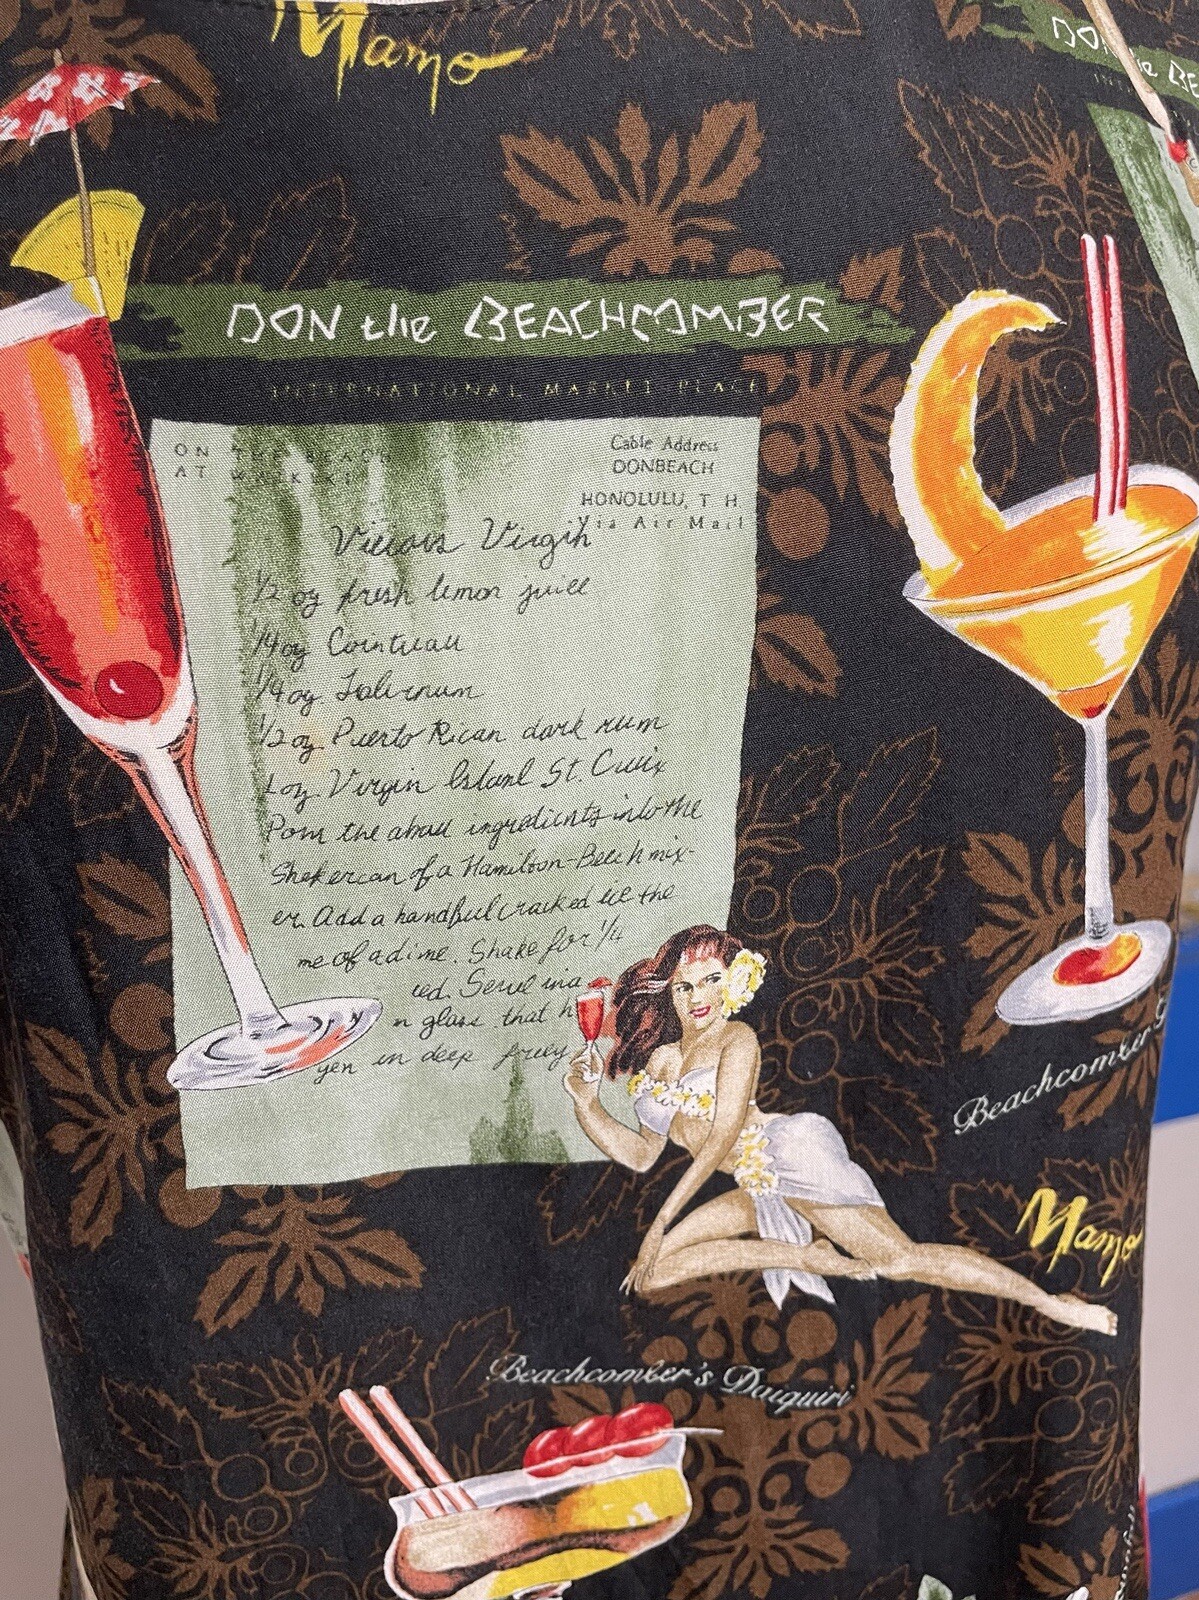 Mamo
DON the BE
DON the BEACHCOMBER
INTERNATIONAL MARKET PLACE
ON THE BEACH
AT WAIKIKI
Cable Address
DONBEACH
HONOLULU, T H.
Via Air Mail
Vicious Virgin
1/2 oz fresh lemon juice
1/4 oz Cointreau
1/4 oz Falernum
1/2 oz Puerto Rican dark rum
1 oz Virgin Island St. Croix
Pour the above ingredients into the
Shaker can of a Hamilton-Beach mix-
er. Add a handful cracked ice the
me of a dime. Shake for 1/4
ed. Serve in a
n glass that h
yen in deep
Beachcomber
Mamo
Beachcomber's Daiquiri